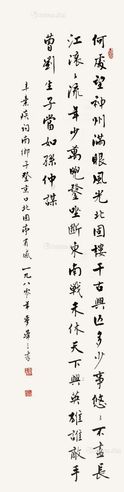 何處望神州滿眼風光北固樓千古興亡多少事悠〻不盡長
江滾〻流年少萬兜鍪坐斷東南戰未休天下英雄誰敵手
曹劉生子當如孫仲謀
辛棄疾詞南鄉子登京口北固亭有感一九八〇年 書